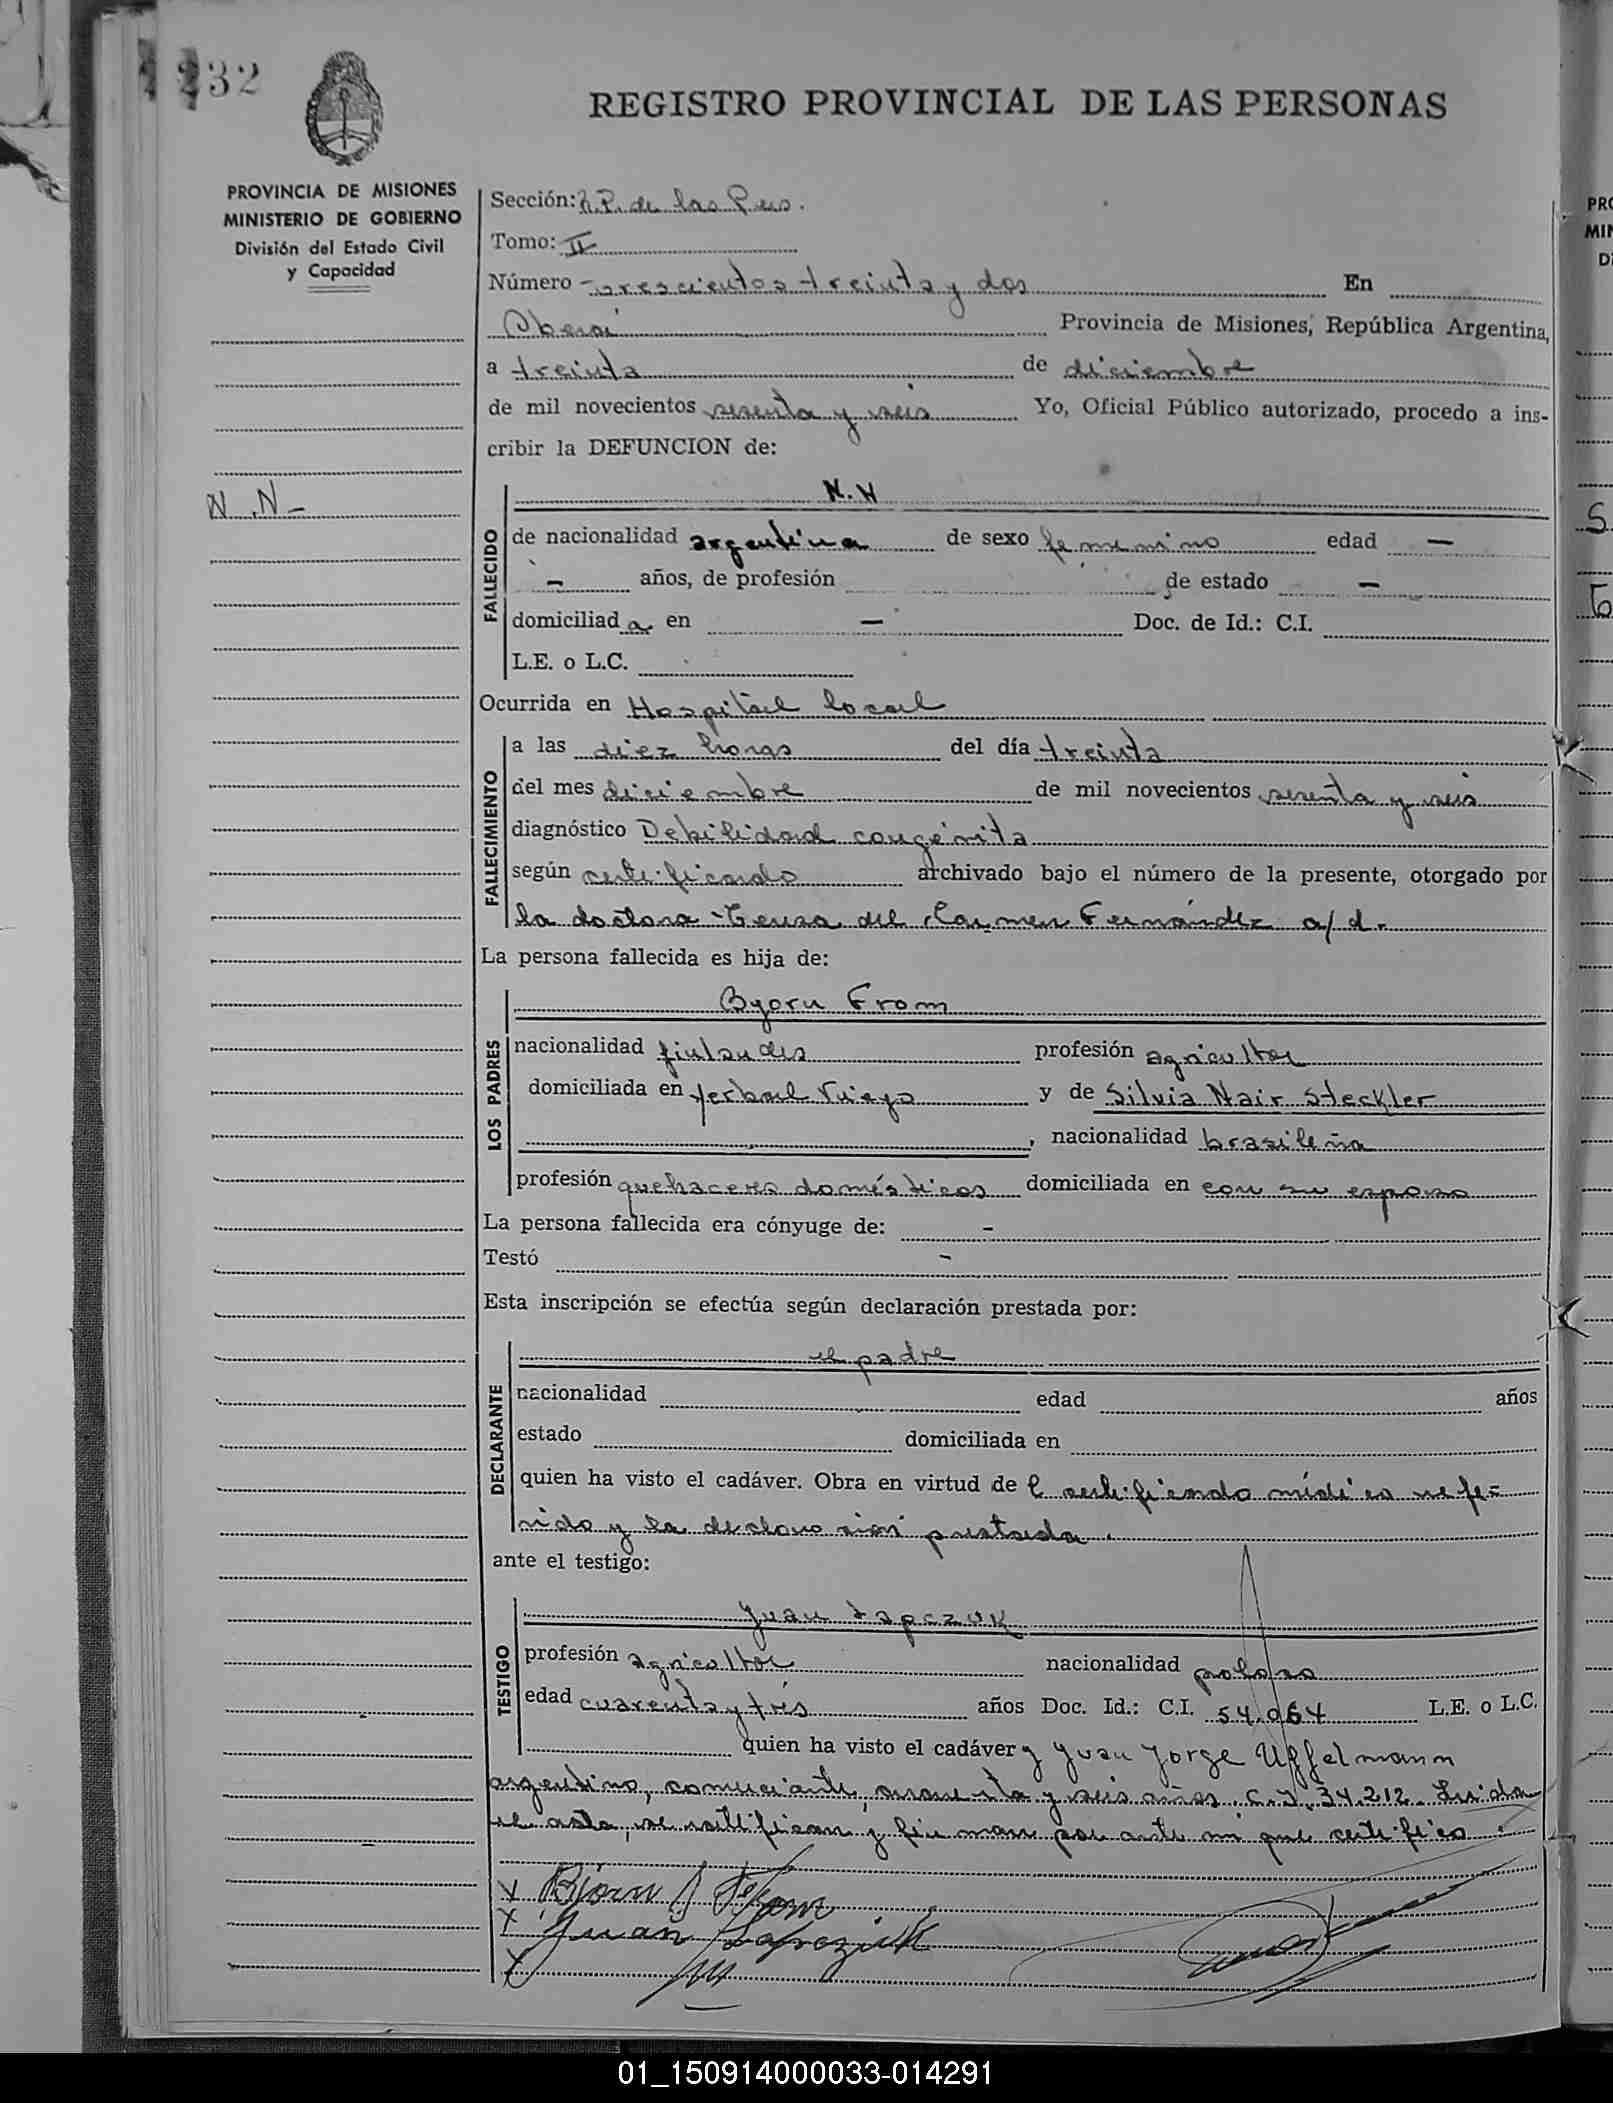 232
REGISTRO PROVINCIAL DE LAS PERSONAS
PROVINCIA DE MISIONES
MINISTERIO DE GOBIERNO
División del Estado Civil
y Capacidad
N.N-
Sección: R.P. de las Pers.
Tomo: II
Número trescientos treinta y dos En
Oberá Provincia de Misiones, República Argentina,
a treinta de diciembre
de mil novecientos sesenta y seis Yo, Oficial Público autorizado, procedo a ins-
cribir la DEFUNCION de:
FALLECIDO
N.N
de nacionalidad argentina de sexo femenino edad —
— años, de profesión de estado —
domiciliad a en — Doc. de Id.: C.I.
L.E. o L.C.
Ocurrida en Hospital local
FALLECIMIENTO
a las diez horas del día treinta
del mes diciembre de mil novecientos sesenta y seis
diagnóstico Debilidad congénita
según certificado archivado bajo el número de la presente, otorgado por
la doctora Teresa del Carmen Fernández a/d.
La persona fallecida es hija de:
LOS PADRES
Byorn From
nacionalidad finlandés profesión agricultor
domiciliada en Yerbal Viejo y de Silvia Nair Steckler
, nacionalidad brasileña
profesión quehaceres domésticos domiciliada en con su esposo
La persona fallecida era cónyuge de: -
Testó -
Esta inscripción se efectúa según declaración prestada por:
DECLARANTE
el padre
nacionalidad edad años
estado domiciliada en
quien ha visto el cadáver. Obra en virtud de l certificado médico refe=
rido y la declaración prestada.
ante el testigo:
TESTIGO
Juan Lapczuk
profesión agricultor nacionalidad polaco
edad cuarenta y trés años Doc. Id.: C.I. 54.064 L.E. o L.C.
quien ha visto el cadáver y Juan Jorge Uffelmann
argentino, comerciante, cuarenta y seis años C.I. 34.212. Leída
el acta, se ratifican y firman por ante mi que certifico.
X Bjorn From
X Juan Lapczuk
X
01_150914000033-014291